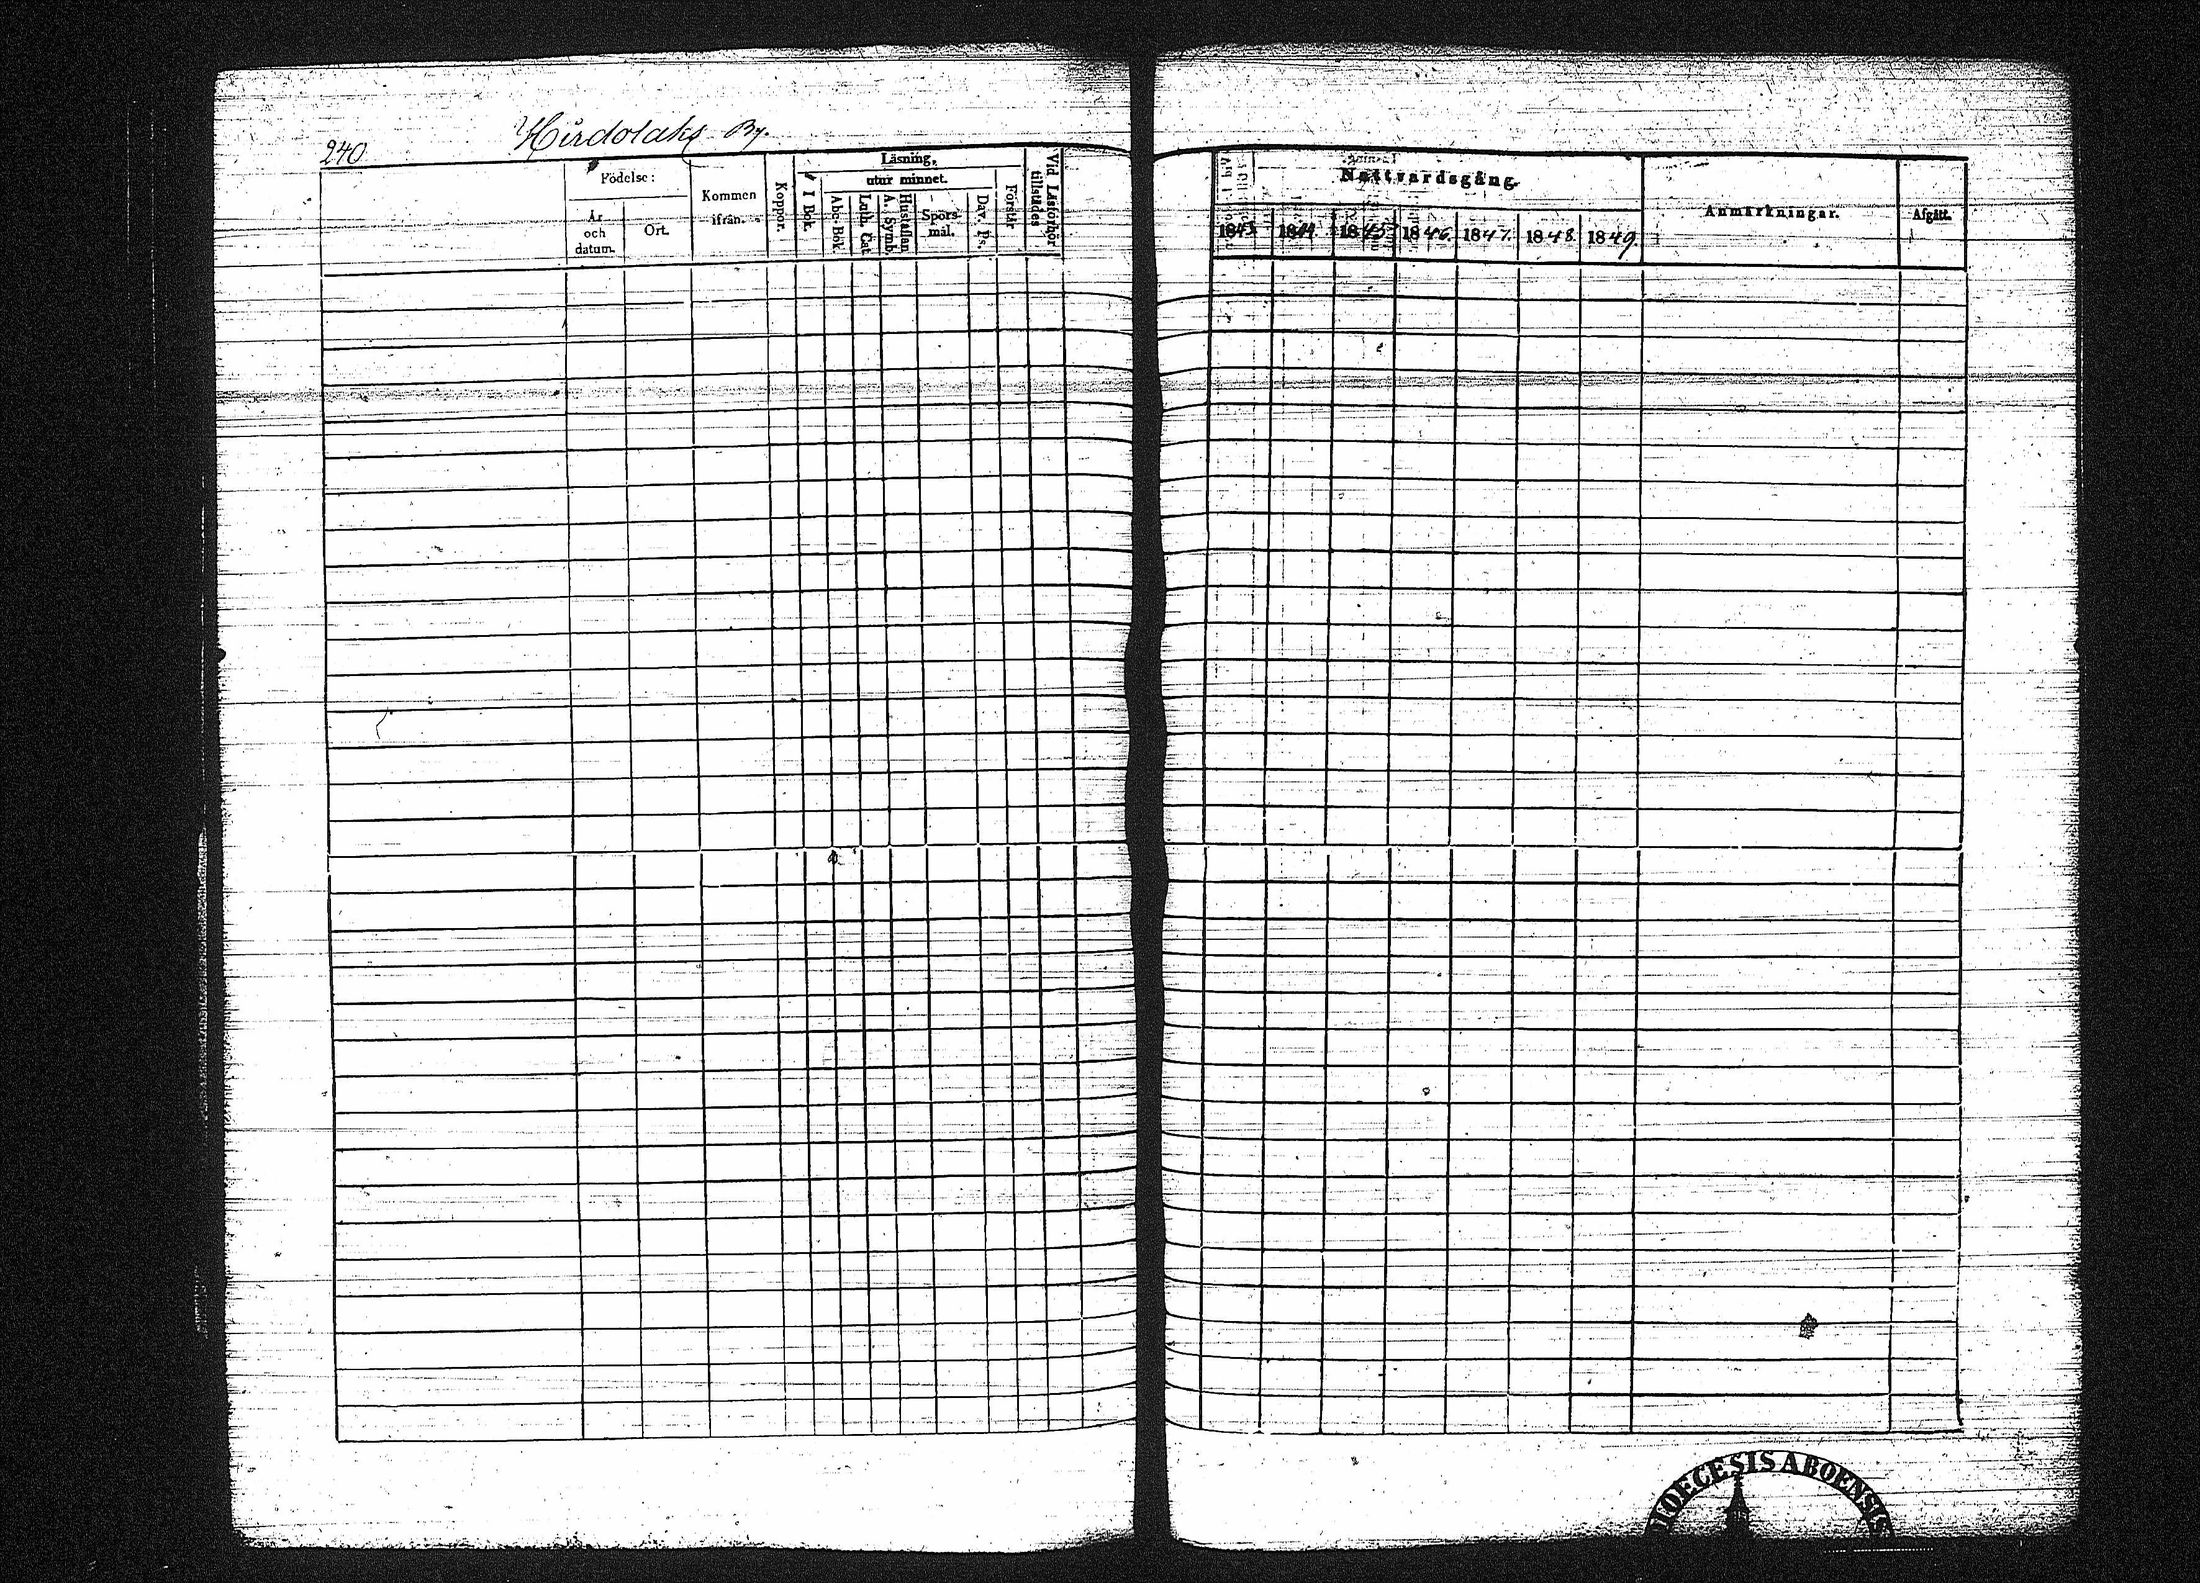 240.
Hirdolaks By.
Födelse:
År och datum.
Ort.
Kommen ifrån.
Koppor.
Läsning,
I Bok.
utur minnet.
Abc-Bok
Luth. Cat.
Hustaflan A. Symb.
Spörsmål.
Dav. Ps.
Förstår
Vid Läsförhör tillstädes
Nattvardsgång.
1843. 1844. 1845 1846. 1847. 1848. 1849.
Anmärkningar.
Afgått.
DIOECESIS ABOENSIS